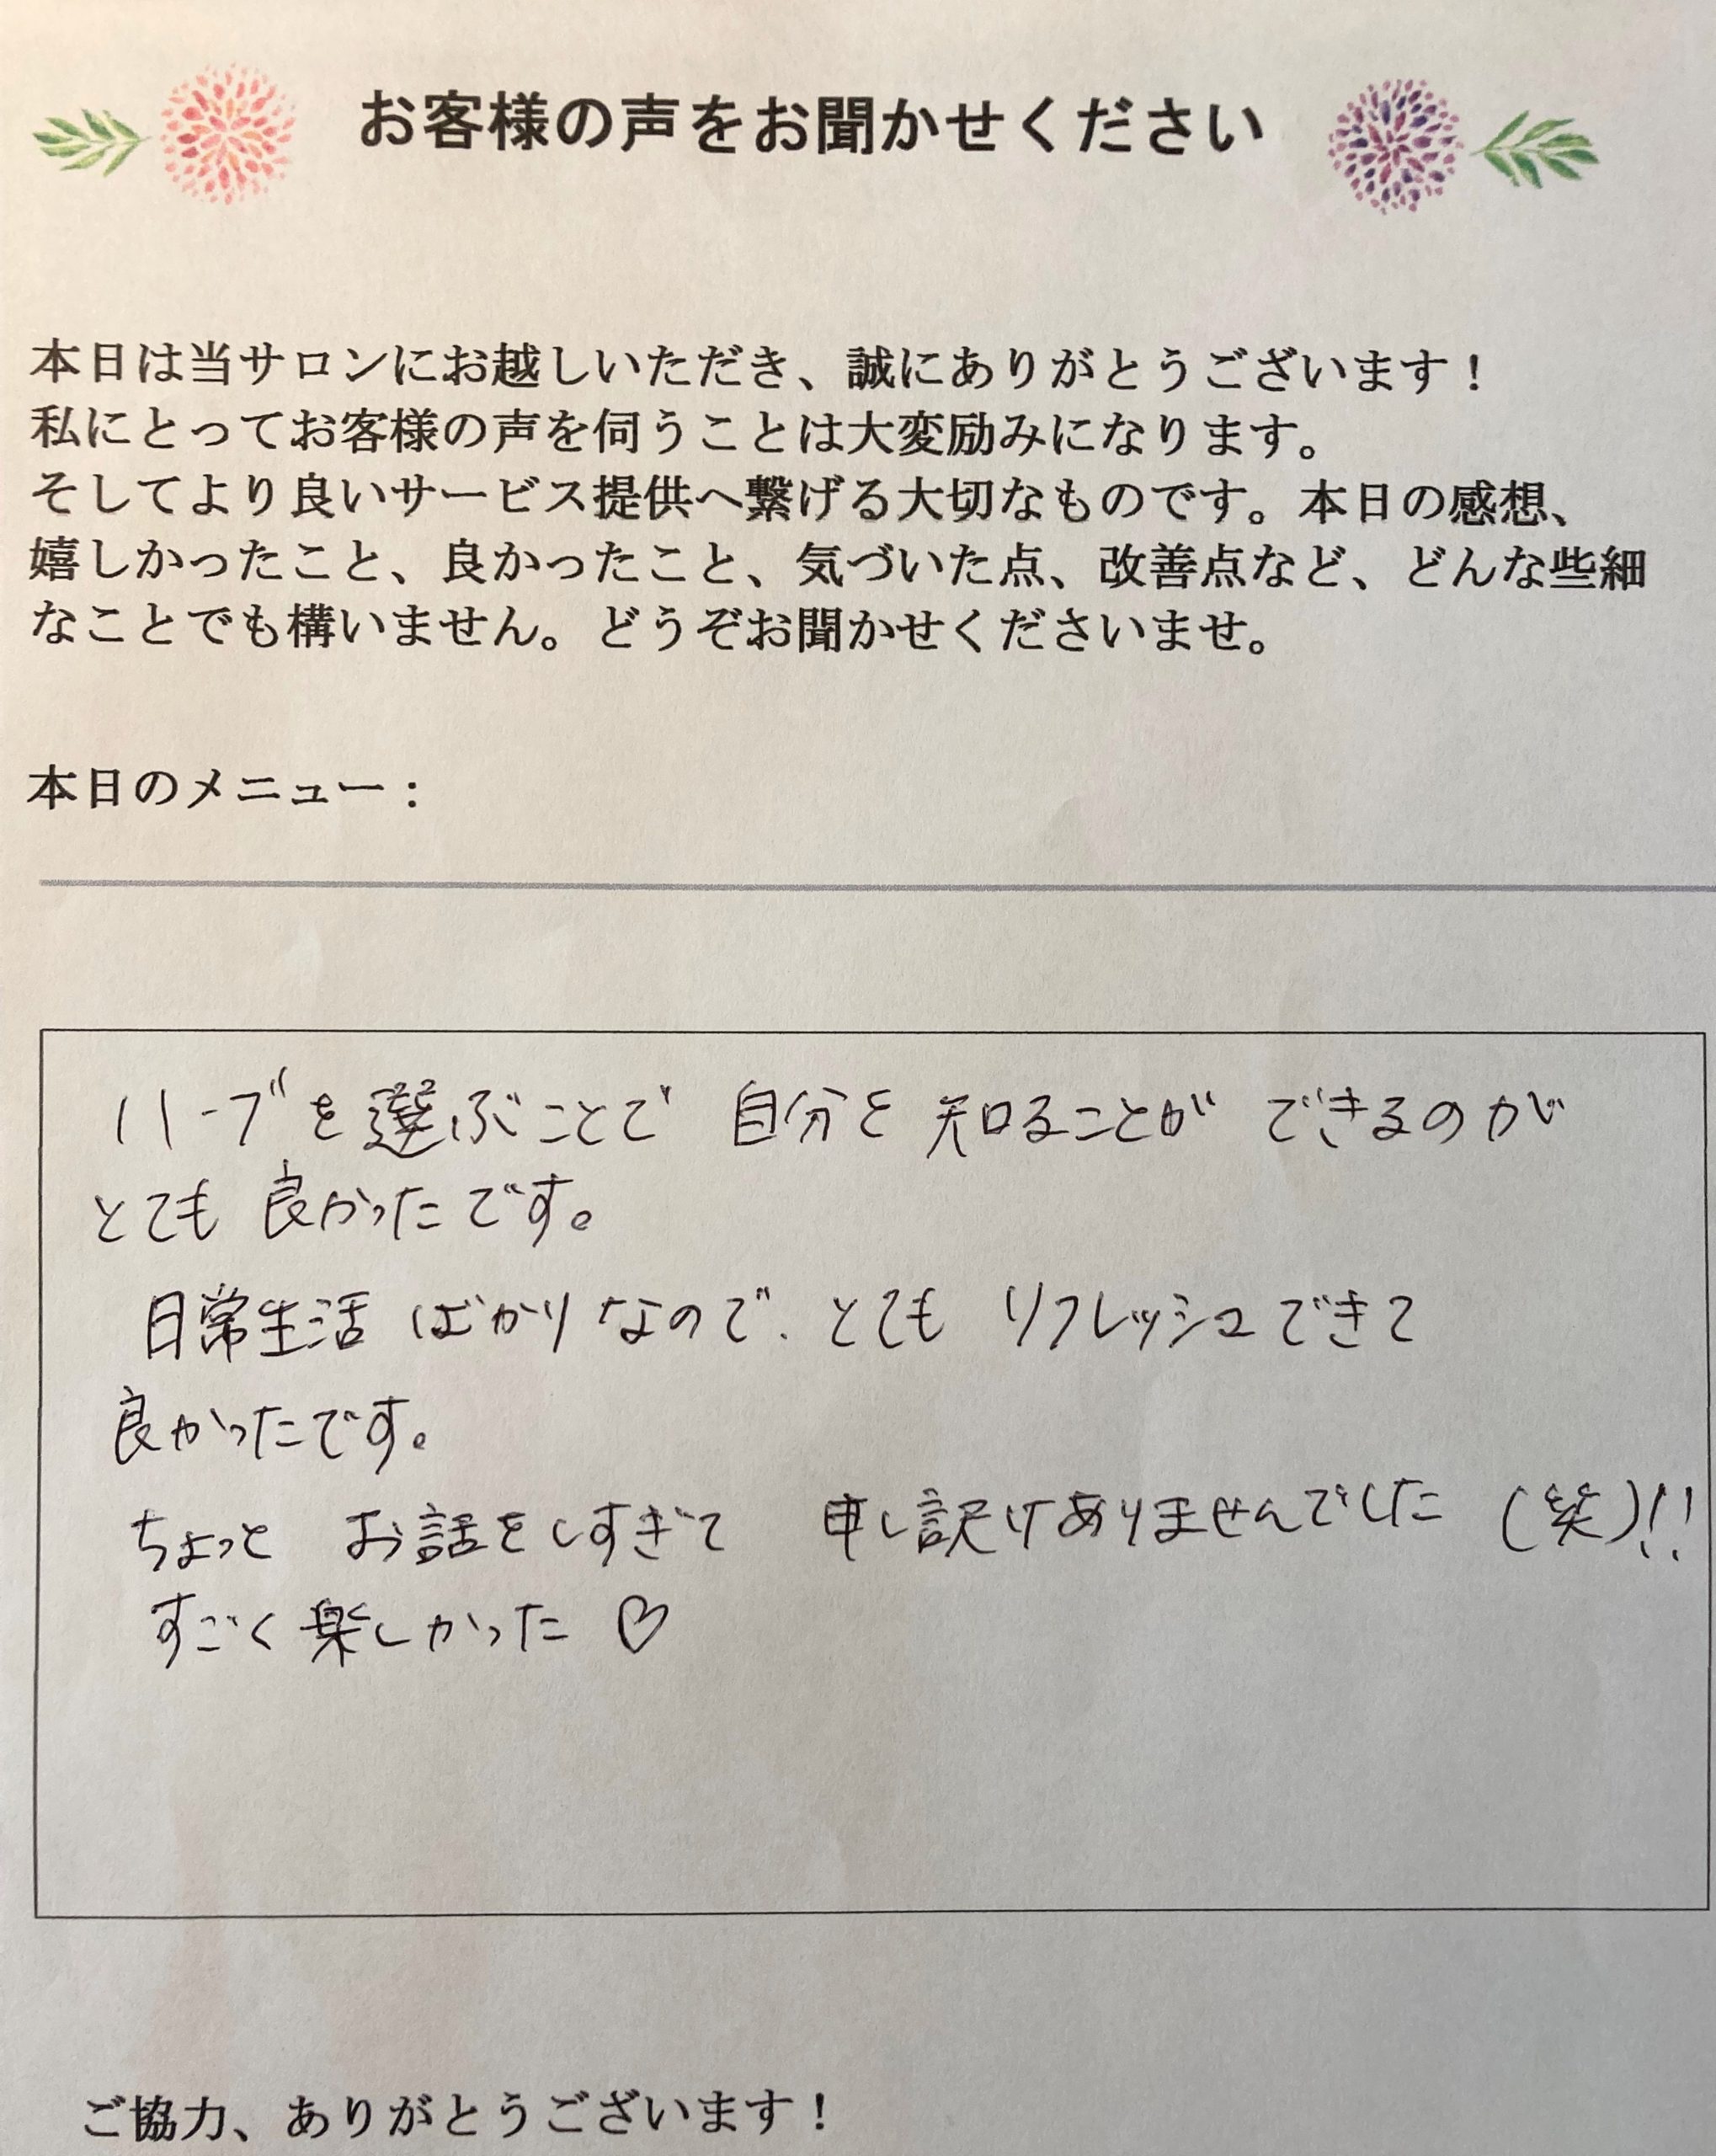 お客様の声をお聞かせください
本日は当サロンにお越しいただき、誠にありがとうございます！
私にとってお客様の声を伺うことは大変励みになります。
そしてより良いサービス提供へ繋げる大切なものです。本日の感想、
嬉しかったこと、良かったこと、気づいた点、改善点など、どんな些細
なことでも構いません。どうぞお聞かせくださいませ。
本日のメニュー：
ハーブを選ぶことで 自分を 知ることが できるのが
とても 良かったです。
日常生活 ばかりなので、とても リフレッシュできて
良かったです。
ちょっと お話をしすぎて 申し訳けありませんでした (笑)!!
すごく楽しかった ♡
ご協力、ありがとうございます！